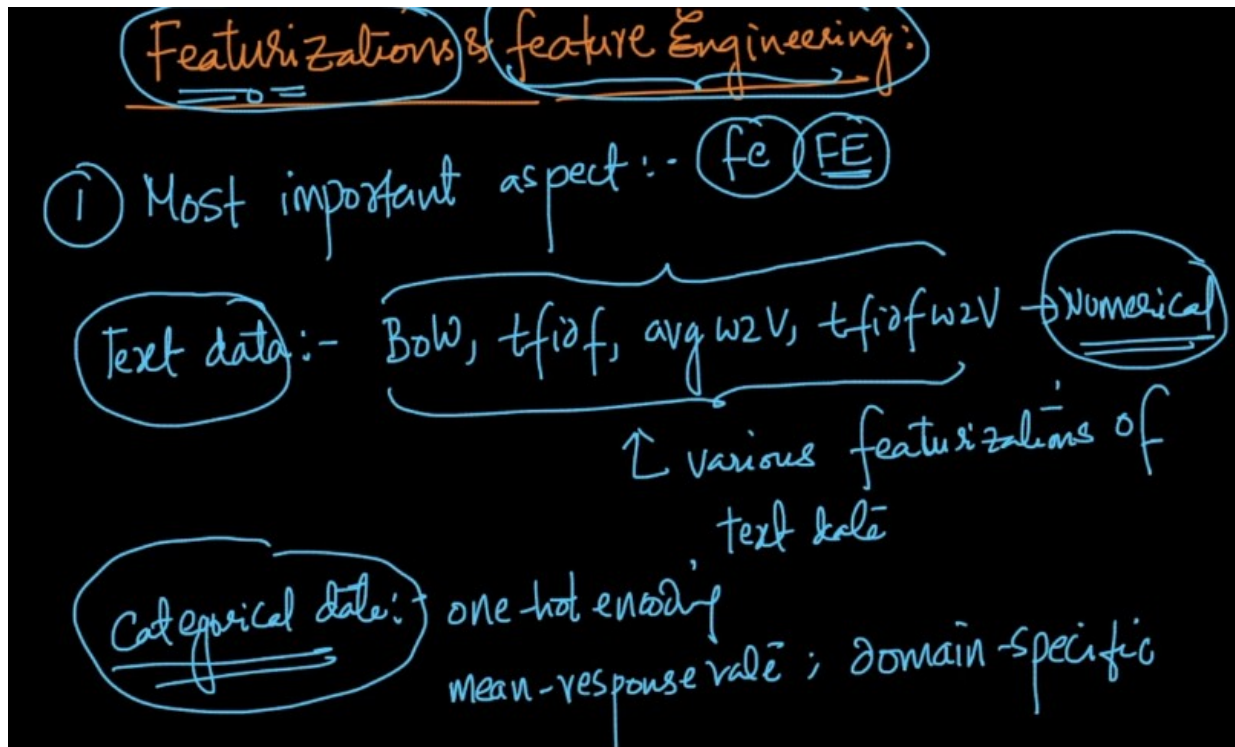 Featurizations & feature Engineering:
1 Most important aspect:- fe FE
Text data:- BoW, tfidf, avg w2V, tfidf w2V → Numerical
↑ various featurizations of
text data
Categorical data:- one-hot encoding
mean-response rate ; domain-specific